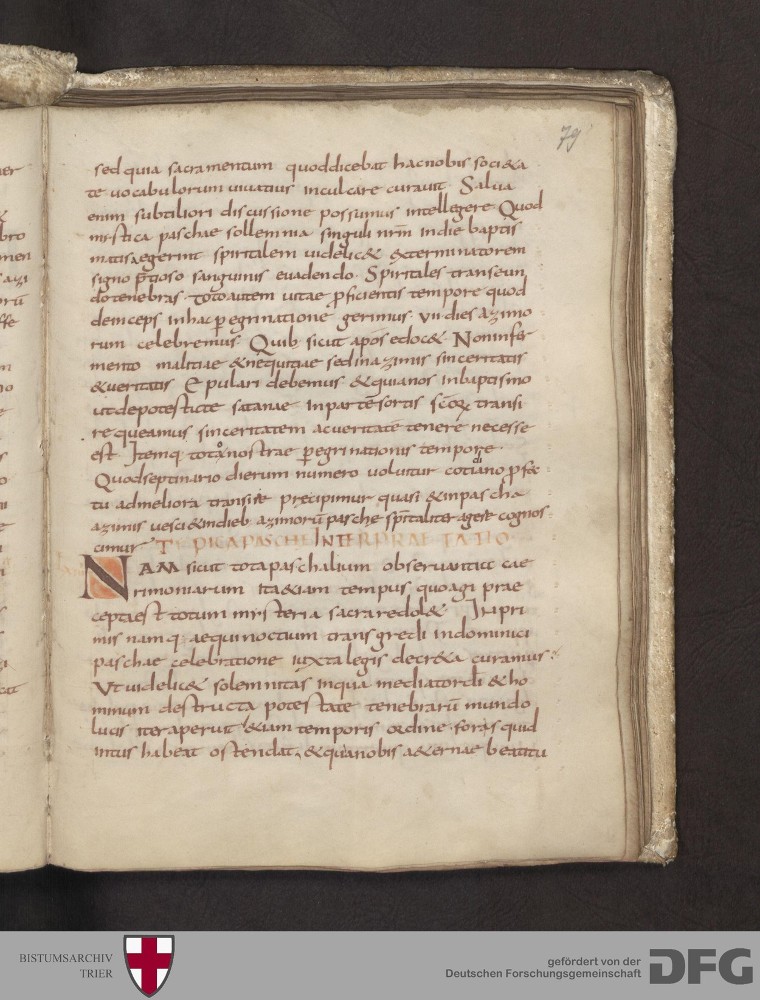 79
sed quia sacramentum quoddicebat hacnobis soci&a
te uocabulorum uiuatius inculcare curauit. Salua
enim subtiliori discussione possumus intellegere Quod
mistica paschae sollemnia singuli nrm indie baptis
matis aegerint spiritalem uidelic& &xterminatorem
signo p̄tioso sanguinis euadendo. Spiritales transeun
do tenebras. Toto autem uitae proficientis tempore quod
deinceps inhac peregrinatione gerimus. vii dies azimo
rum celebremus. Quib; sicut apos edoc& Noninfer
mento malitiae &nequitiae sedinazimis sinceritatis
&ueritatis Epulari debemus. &quianos inbaptismo
utdepotestate satanae inpartē sortis scōrum transi
re queamus sinceritatem acueritatē tenere necesse
est Itemq; totanostrae peregrinationis tempore.
Quodseptinario dierum numero uoluitur cotiano profec
tu admeliora transire precipimur quasi &inpascha
azimis uesci &indieb; azimorū pasche spiritaliter agere cognos
cimur TIPICA PASCHE INTERPRAETATIO.
NAM sicut tota paschalium obseruantia cae
rimoniarum ita&iam tempus quo agi prae
cepta est totum misteria sacra redol& Inpri
mis namq; aequinoctium transgredi indominici
paschae celebratione iuxta legis decr&a curamus.
Vt uidelic& solemnitas inqua mediator di &ho
minum destructa potestate tenebrarū mundo
lucis iter aperuit &iam temporis ordine foras quid
intus habeat ostendat. &quia nobis a&ernae beatitu
BISTUMSARCHIV
TRIER
gefördert von der
Deutschen Forschungsgemeinschaft
DFG